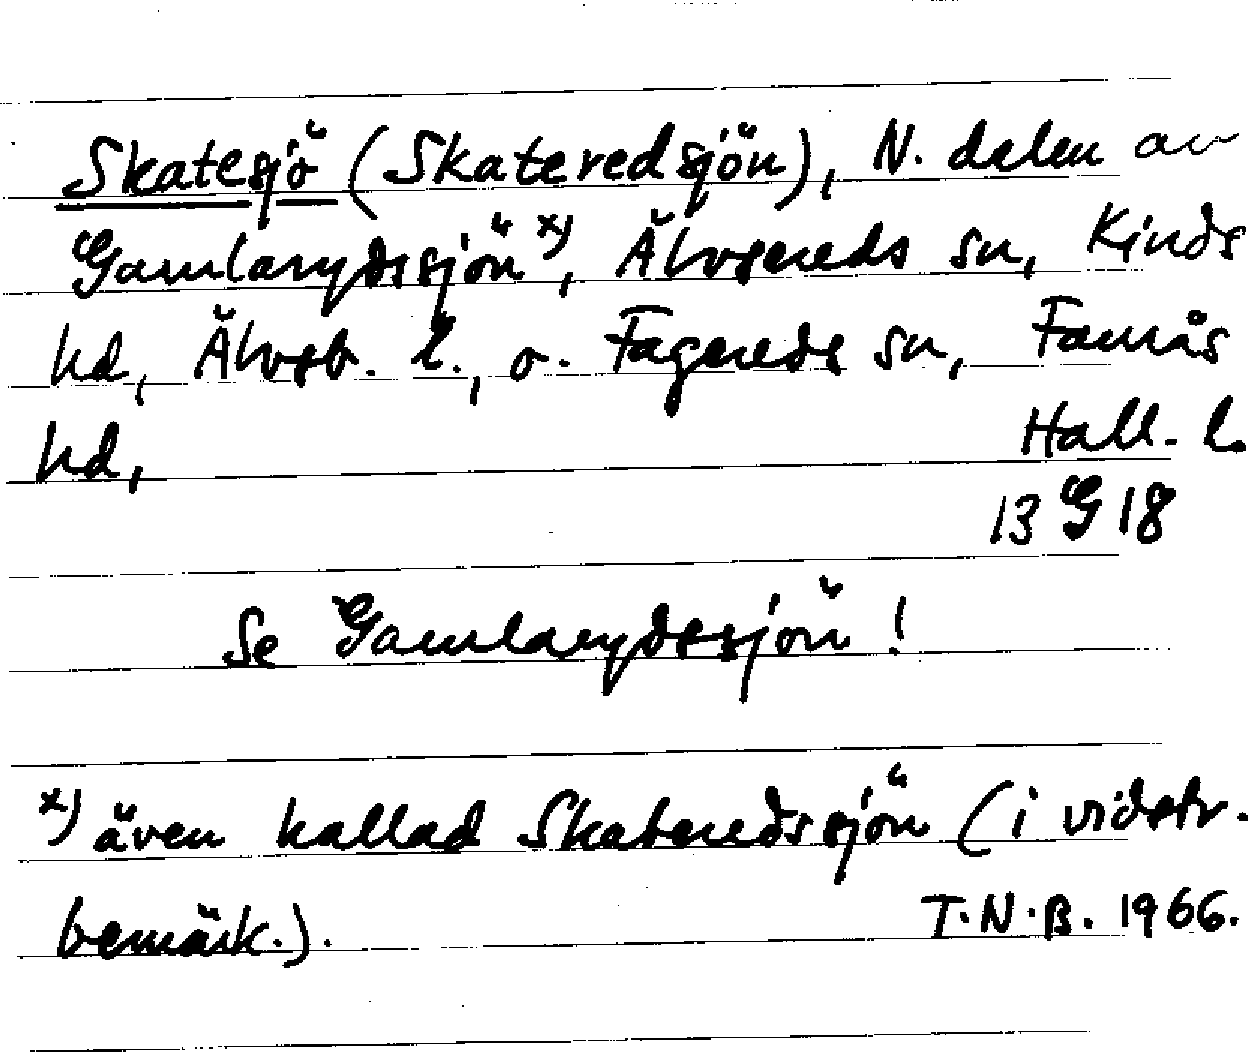 Skatesjö (Skateredsjön), N. delen av
Gamlarydssjön x), Älvsereds sn, Kinds
hd, Älvsb. l., o. Fagereds sn, Faurås
hd, Hall. l.
13 G 18
Se Gamlarydssjön!
x) även kallad Skateredssjön (i vidstr.
bemärk.). T.N.B. 1966.